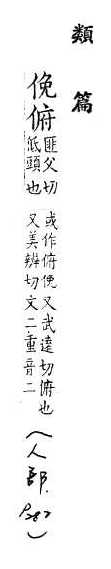 類篇
俛俯匪父切低頭也或作俯俛又武遠切俯也又美辨切文二重音二(人部,P.287)